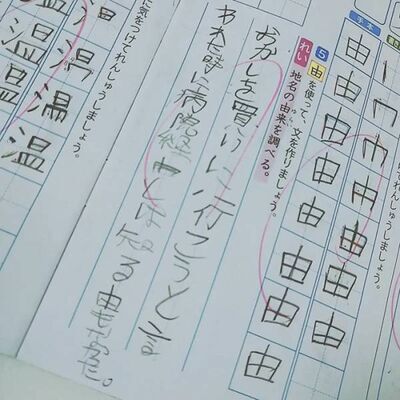 てれんしゅうしましょう。
手本
由 由 由 由 由
由 由 由 由 由 由 由
5 由を使って、文を作りましょう。
れい 地名の由来を調べる。
おかしを買いに行こうとさそ
われた時に病院経由とは知る由もなかった。
に気をつけてれんしゅうしましょう。
温 温
温 温 温 温